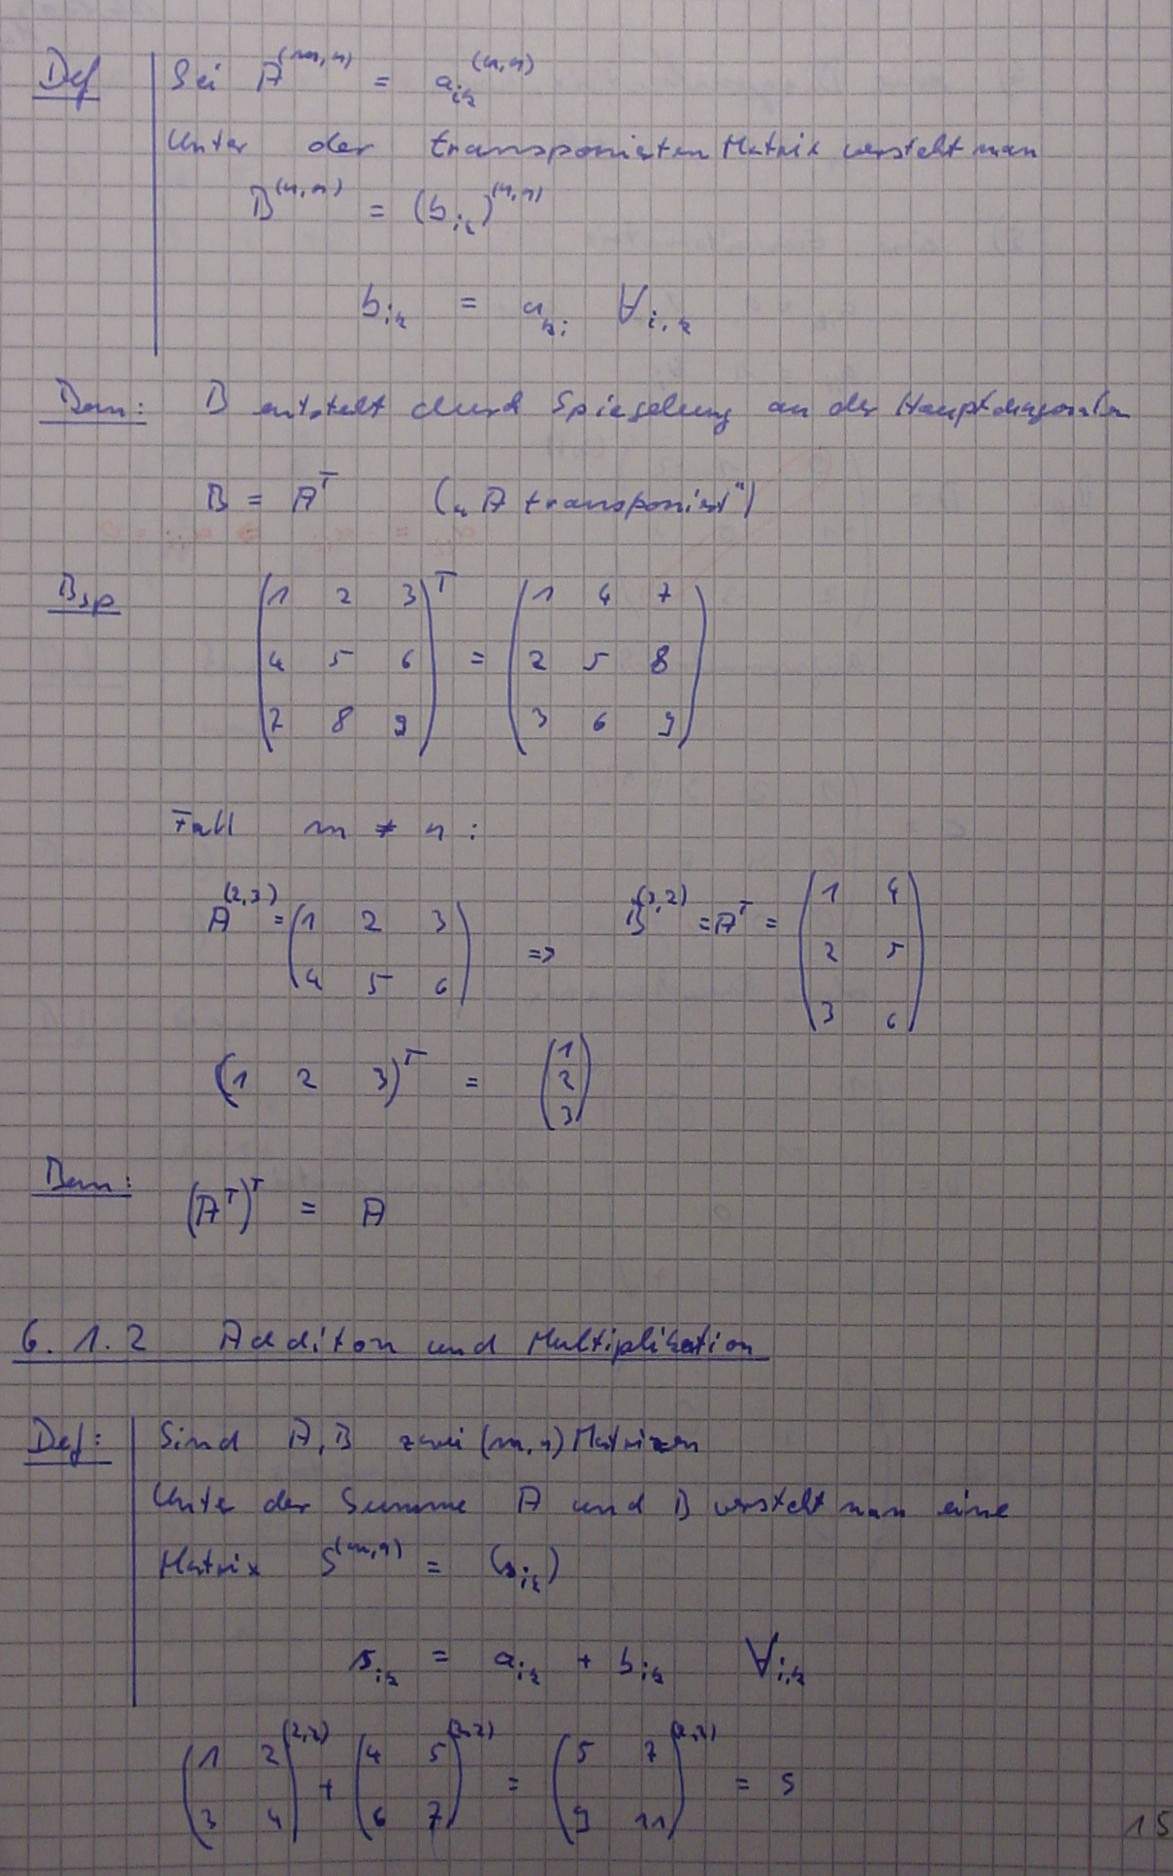 Def Sei A^(m,n) = a_ik^(m,n)
Unter der transponierten Matrix versteht man
B^(n,m) = (b_ik)^(n,m)
b_ik = a_ki ∀ i,k
Bem: B entsteht durch Spiegelung an der Hauptdiagonalen
B = A^T („A transponiert“)
Bsp (1 2 3 / 4 5 6 / 7 8 9)^T = (1 4 7 / 2 5 8 / 3 6 9)
Fall m ≠ n :
A^(2,3) = (1 2 3 / 4 5 6) => B^(3,2) = A^T = (1 4 / 2 5 / 3 6)
(1 2 3)^T = (1 / 2 / 3)
Bem: (A^T)^T = A
6.1.2 Additon und Multiplikation
Def: Sind A, B zwei (m,n) Matrizen
Unter der Summe A und B versteht man eine
Matrix S^(m,n) = (s_ik)
s_ik = a_ik + b_ik ∀ i,k
(1 2 / 3 4)^(2,2) + (4 5 / 6 7)^(2,2) = (5 7 / 9 11)^(2,2) = S
15